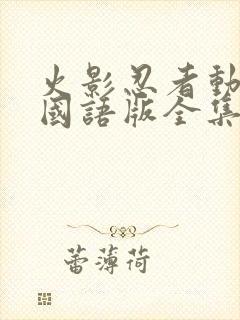 火影忍者動
國語版全集
蕾薄荷